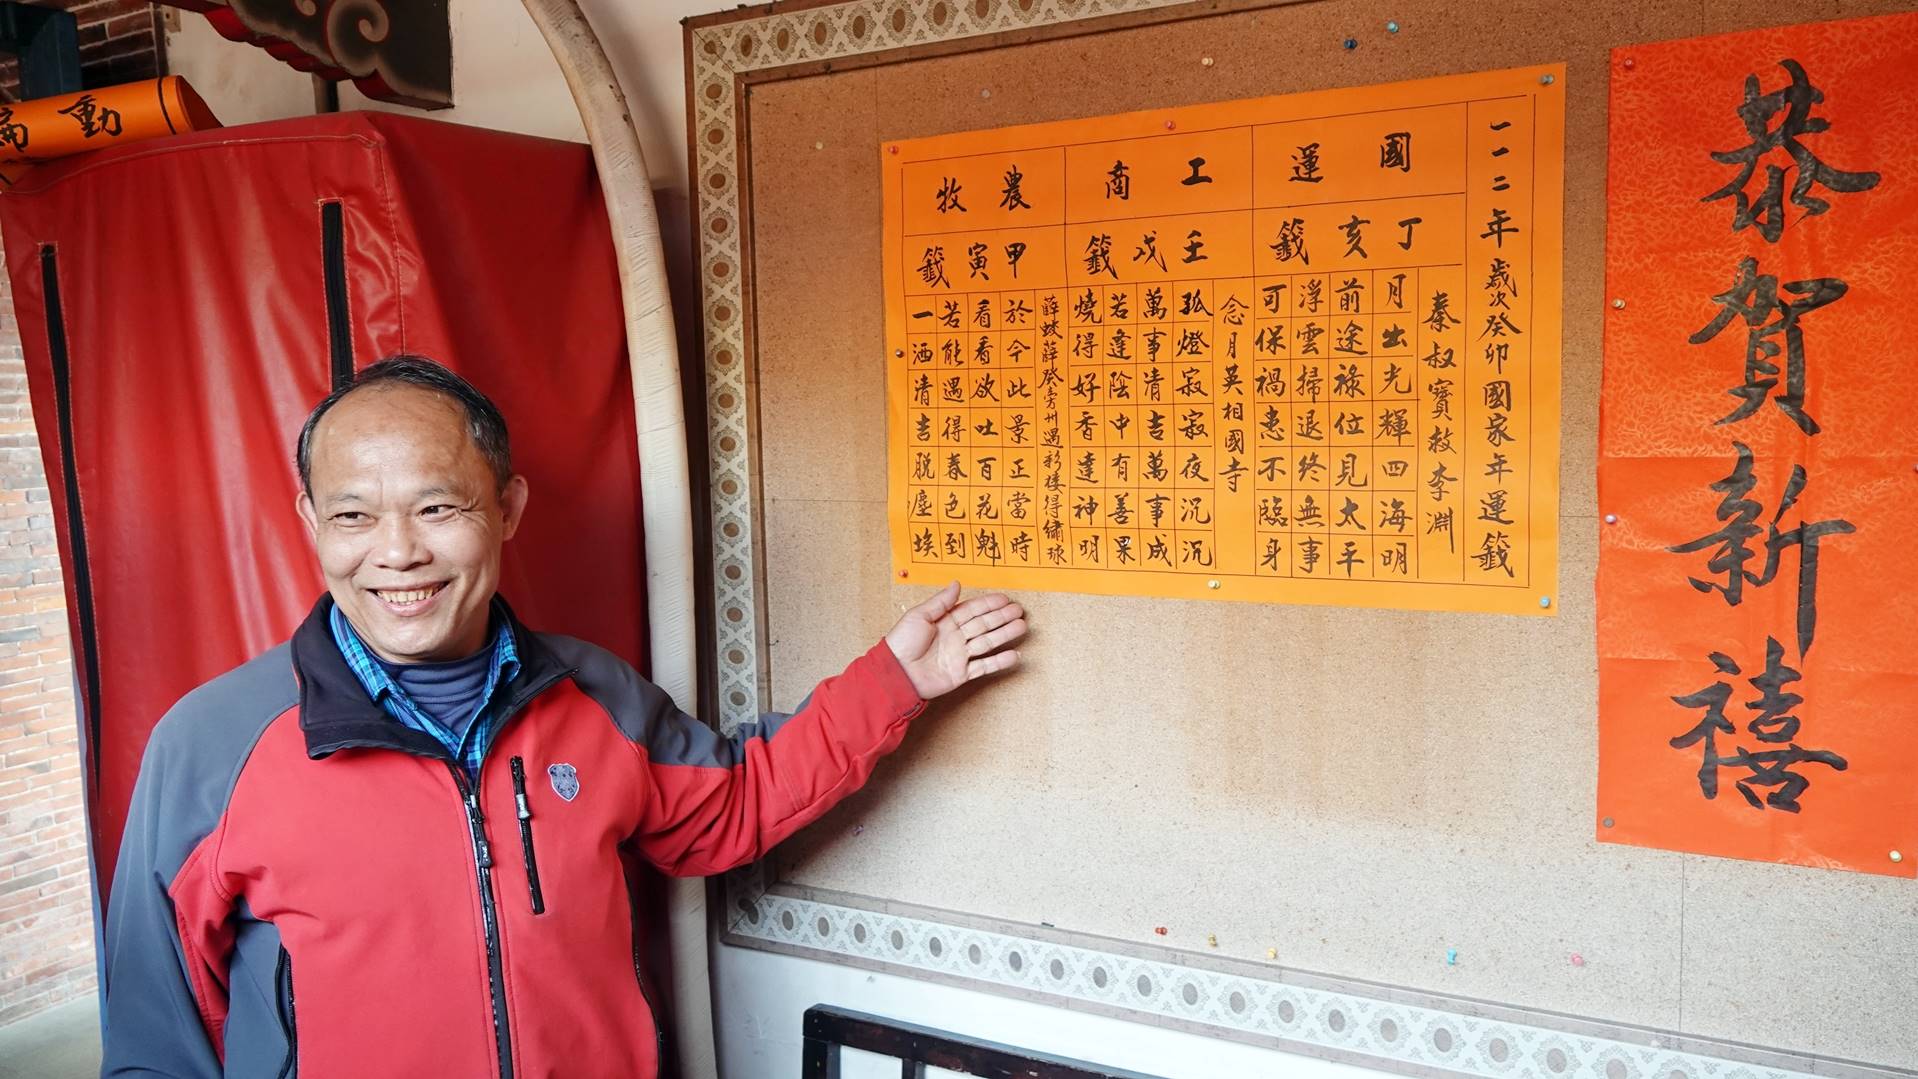 恭賀新禧
一一二年歲次癸卯國家年運籤
國運
丁亥籤
秦叔寶救李淵
月出光輝四海明
前途祿位見太平
浮雲掃退終無事
可保禍患不臨身
工商
壬戌籤
念月英相國寺
孤燈寂寂夜沉沉
萬事清吉萬事成
若逢陰中有善果
燒得好香達神明
農牧
甲寅籤
薛蛟薛癸房州遇彩樓得繡球
於今此景正當時
看看欲吐百花魁
若能遇得春色到
一洒清吉脫塵埃
動